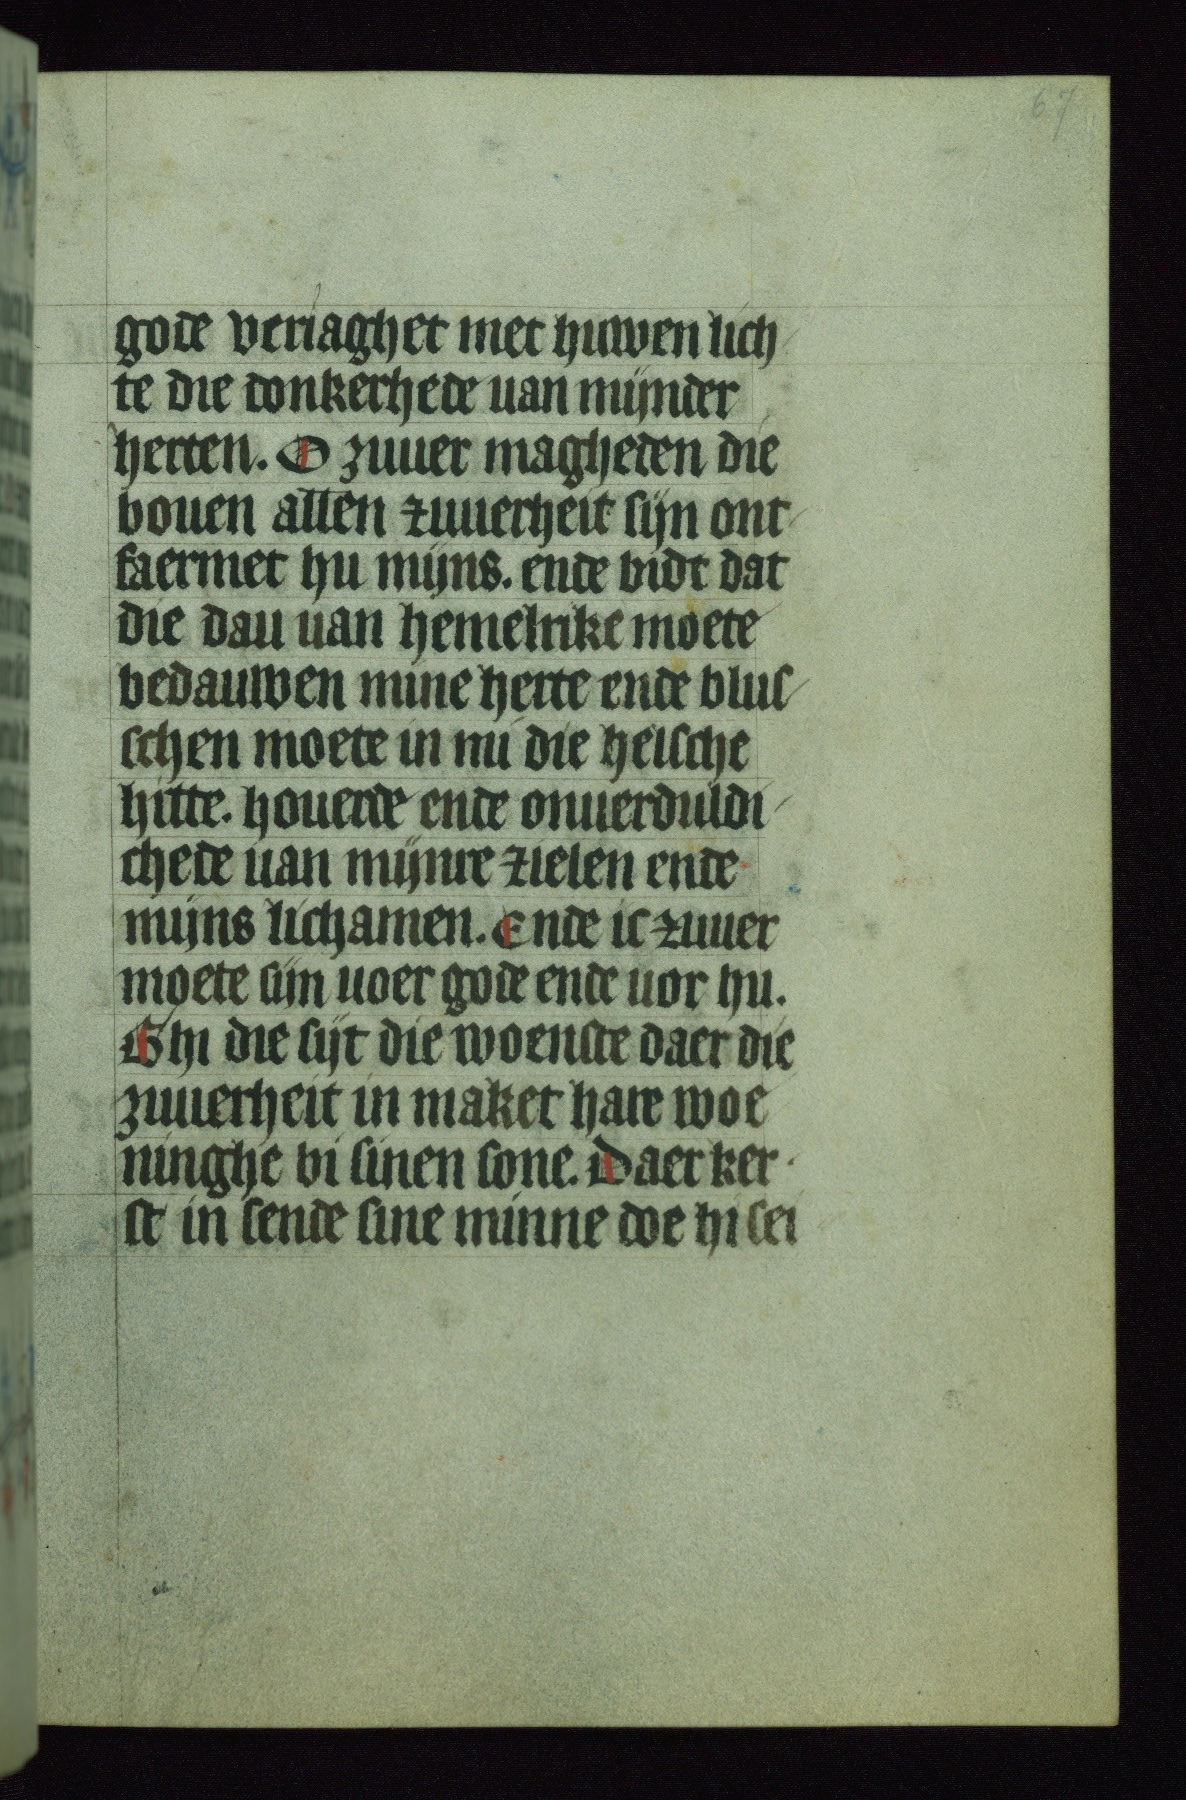 67
gode veriaghet met huwen lich
te die donkerhede uan mijnder
herten. O zuuer magheden die
bouen allen zuuerheit sijn ont
faermet hu mijns. ende bidt dat
die dau uan hemelrike moete
bedauwen mine herte ende blus
schen moete in mi die helsche
hitte. houerde ende onuerduldi
chede uan mijnre zielen ende
mijns lichamen. Ende ic zuuer
moete sijn uoer gode ende uor hu.
Ghi die sijt die woenste daer die
zuuerheit in maket hare woe
ninghe bi sinen sone. Daer ker
st in sende sine minne doe hi sei